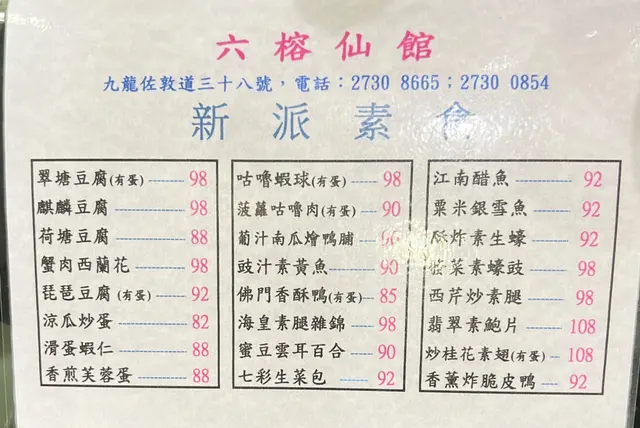 六榕仙館
九龍佐敦道三十八號，電話：2730 8665；2730 0854
新派素食
翠塘豆腐(有蛋) 98
麒麟豆腐 98
荷塘豆腐 88
蟹肉西蘭花 98
琵琶豆腐(有蛋) 92
涼瓜炒蛋 82
滑蛋蝦仁 88
香煎芙蓉蛋 88
咕嚕蝦球(有蛋) 98
菠蘿咕嚕肉(有蛋) 90
葡汁南瓜燴鴨脯
豉汁素黃魚 90
佛門香酥鴨(有蛋) 85
海皇素腿雜錦 98
蜜豆雲耳百合 90
七彩生菜包 92
江南醋魚 92
粟米銀雪魚 98
酥炸素生蠔 92
菜素蠔豉 98
西芹炒素腿 98
翡翠素鮑片 108
炒桂花素翅(有蛋) 108
香薰炸脆皮鴨 92